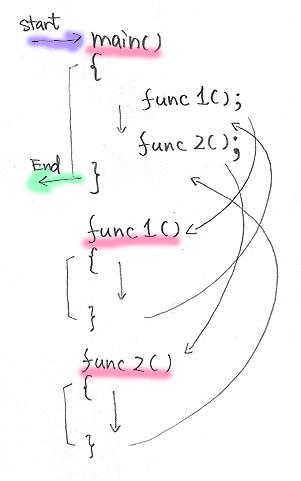 start
main()
{
func 1();
func 2();
End
}
func 1()
{
}
func 2()
{
}